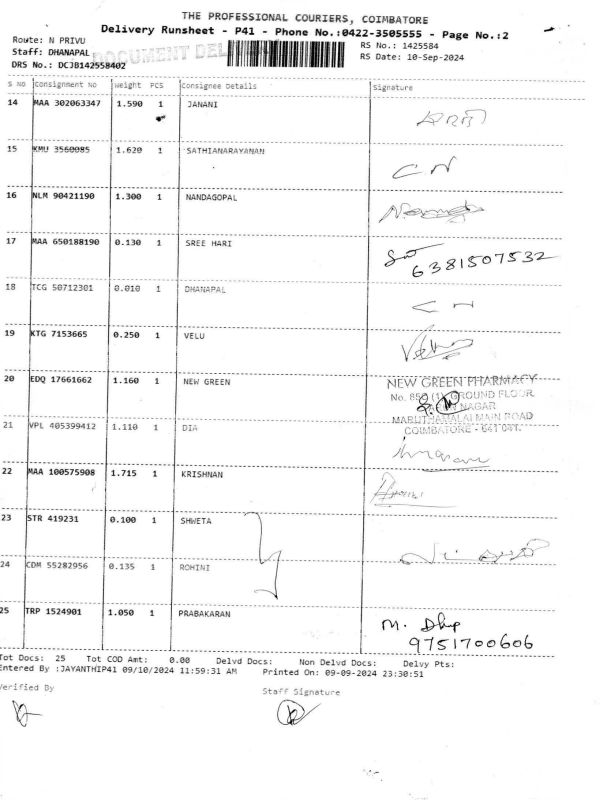 THE PROFESSIONAL COURIERS, COIMBATORE
Delivery Runsheet - P41 - Phone No.:0422-3505555 - Page No.:2
Route: N PRIVU RS No.: 1425584
Staff: DHANAPAL DOCUMENT DEL RS Date: 10-Sep-2024
DRS No.: DCJB142558402
S No Consignment No Weight PCS Consignee Details Signature
14 MAA 302063347 1.590 1 JANANI
15 KMU 3560085 1.620 1 SATHIANARAYANAN C N
16 NLM 90421190 1.300 1 NANDAGOPAL
17 MAA 650188190 0.130 1 SREE HARI
6381507532
18 TCG 50712301 0.010 1 DHANAPAL C N
19 KTG 7153665 0.250 1 VELU
20 EDQ 17661662 1.160 1 NEW GREEN NEW GREEN PHARMACY
GROUND FLOOR
NAGAR
MARUTHAMALAI MAIN ROAD
COIMBATORE - 641 041.
21 VPL 405399412 1.110 1 DIA
22 MAA 100575908 1.715 1 KRISHNAN
23 STR 419231 0.100 1 SHWETA
24 CDM 55282956 0.135 1 ROHINI
25 TRP 1524901 1.050 1 PRABAKARAN M. Dhip
9751700606
Tot Docs: 25 Tot COD Amt: 0.00 Delvd Docs: Non Delvd Docs: Delvy Pts:
Entered By :JAYANTHIP41 09/10/2024 11:59:31 AM Printed On: 09-09-2024 23:30:51
Verified By Staff Signature